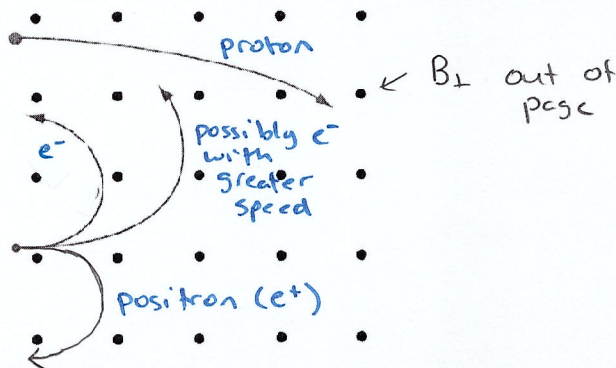 proton
B⊥ out of
page
e⁻
possibly e⁻
with
greater
speed
positron (e⁺)